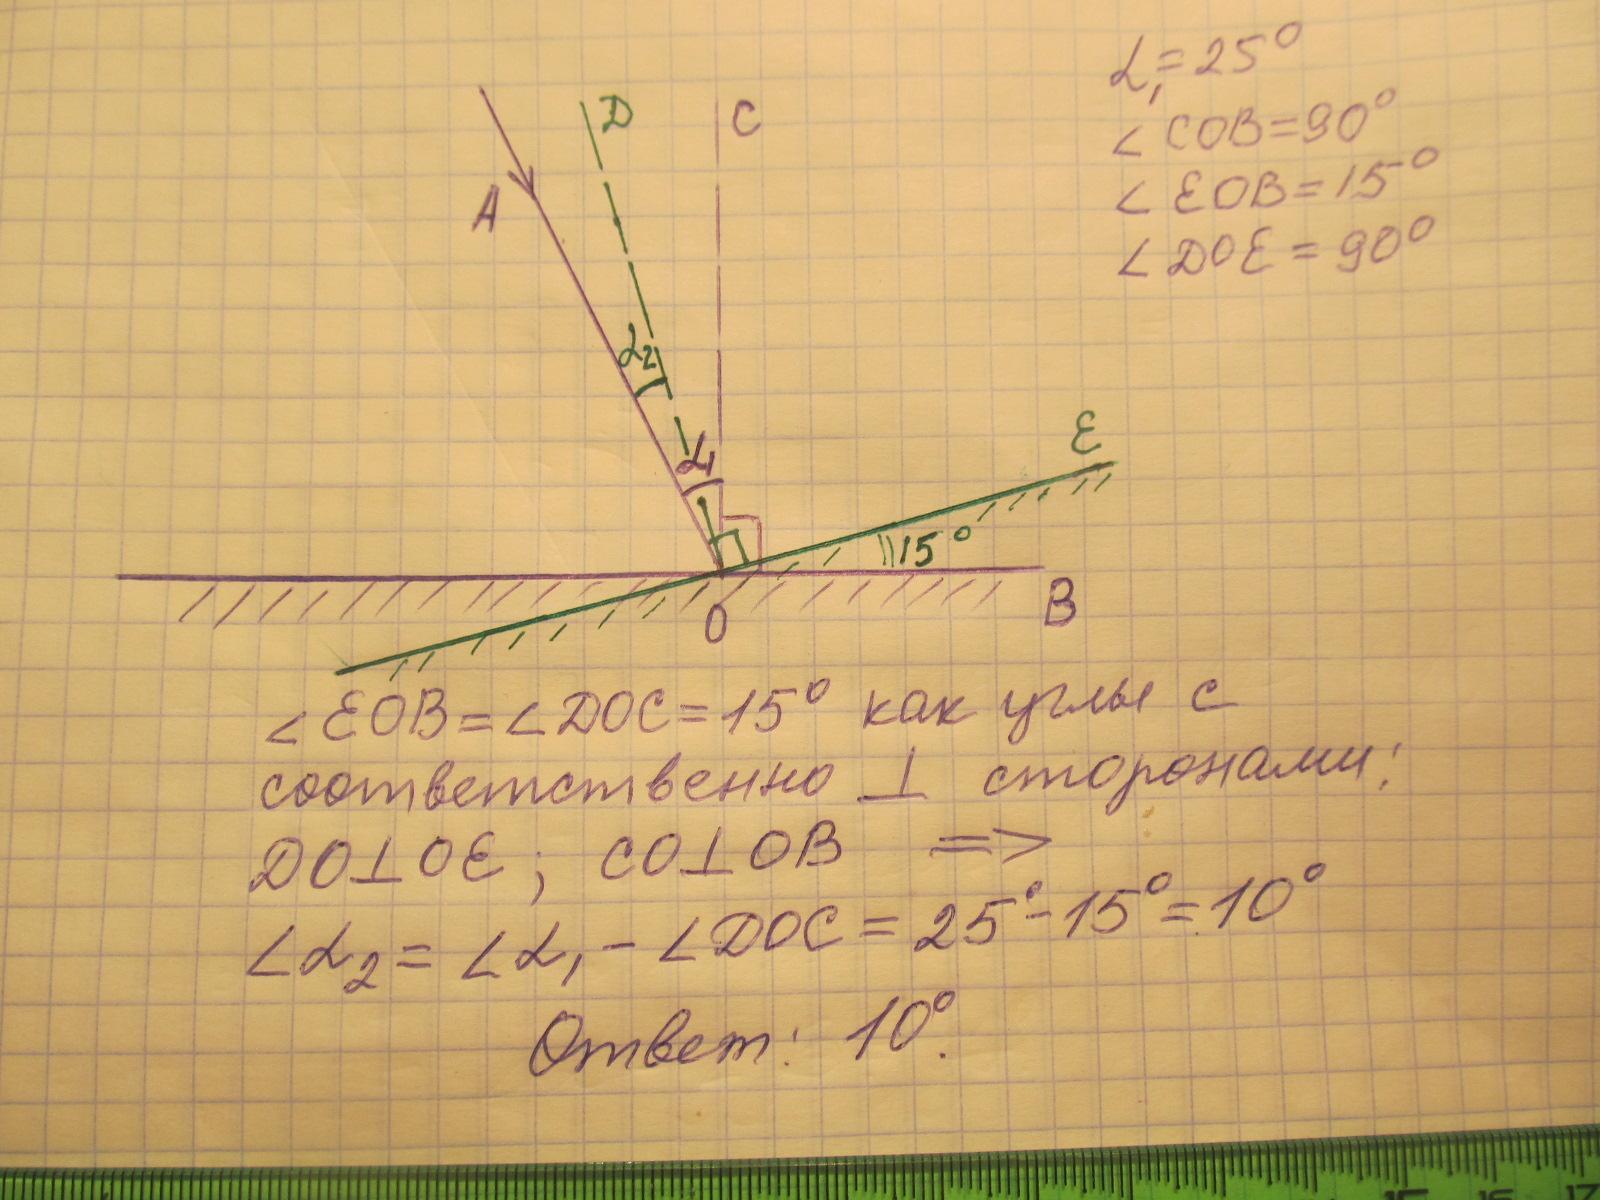 α₁=25°
∠COB=90°
∠EOB=15°
∠DOE=90°
D
C
A
α₂
α₁
E
15°
O
B
∠EOB=∠DOC=15° как углы с
соответственно ⊥ сторонами:
DO⊥OE; CO⊥OB =>
∠α₂=∠α₁-∠DOC=25°-15°=10°
Ответ: 10°.
15
16
17